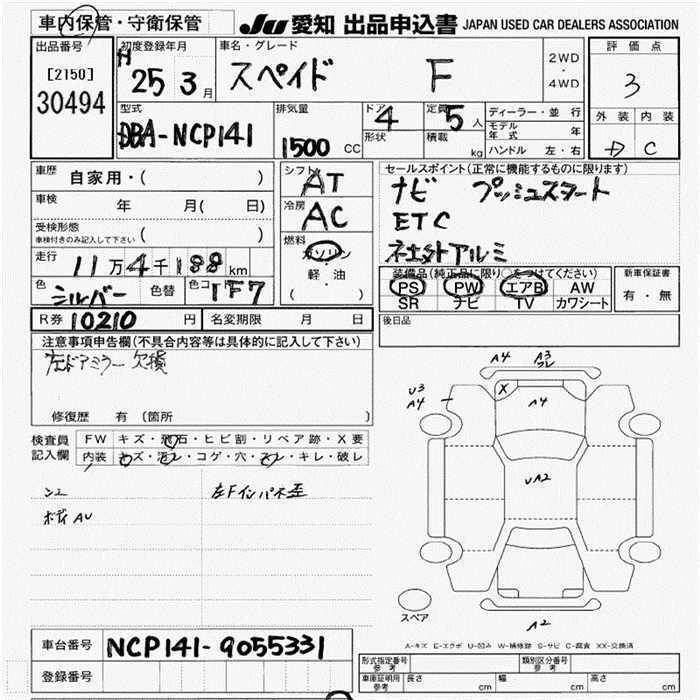 車内保管・守衛保管 JU 愛知 出品申込書 JAPAN USED CAR DEALERS ASSOCIATION
出品番号 初度登録年月 車名・グレード 2WD ・ 4WD 評価点
[2150] H 25 3月 スペイド F 3
30494
型式 排気量 ドア 4 定員 5人 ディーラー・並行 外装 内装
DBA-NCP141 1500 CC 形状 積載 kg モデル年式 年 C
ハンドル 左・右
車歴 自家用・( ) シフト AT セールスポイント(正常に機能するものに限ります)
車検 年 月( 日) 冷房 AC ナビ プッシュスタート
受検形態 ( ) ETC
車検付きのみ記入して下さい 燃料 ガソリン・軽油 ( ) ネエ外アルミ
走行 11万4千188km 装備品(純正品に限り○をつけてください) 新車保証書
色 シルバー 色替 色コード 1F7 PS PW エアB AW 有・無
SR ナビ TV カワシート
R券 10210 円 名変期限 月 日 後日品
注意事項申告欄(不具合内容等は具体的に記入して下さい)
左ドアミラー欠損
修復歴 有 (箇所 )
検査員記入欄 FW キズ・飛石・ヒビ割・リペア跡・X要
内装 キズ・汚レ・コゲ・穴・スレ・キレ・破レ
左Fインパネ歪
ボディ AU
A4 A3 フレ
U3 A4 X A4
UA2
スペア A2
A-キズ E-エクボ U-凹み W-補修跡 S-サビ C-腐食 XX-交換済
車台番号 NCP141-9055331
登録番号
形式指定番号 参考 類別区分番号 参考
車庫証明用 参考 長さ cm 幅 cm 高さ cm